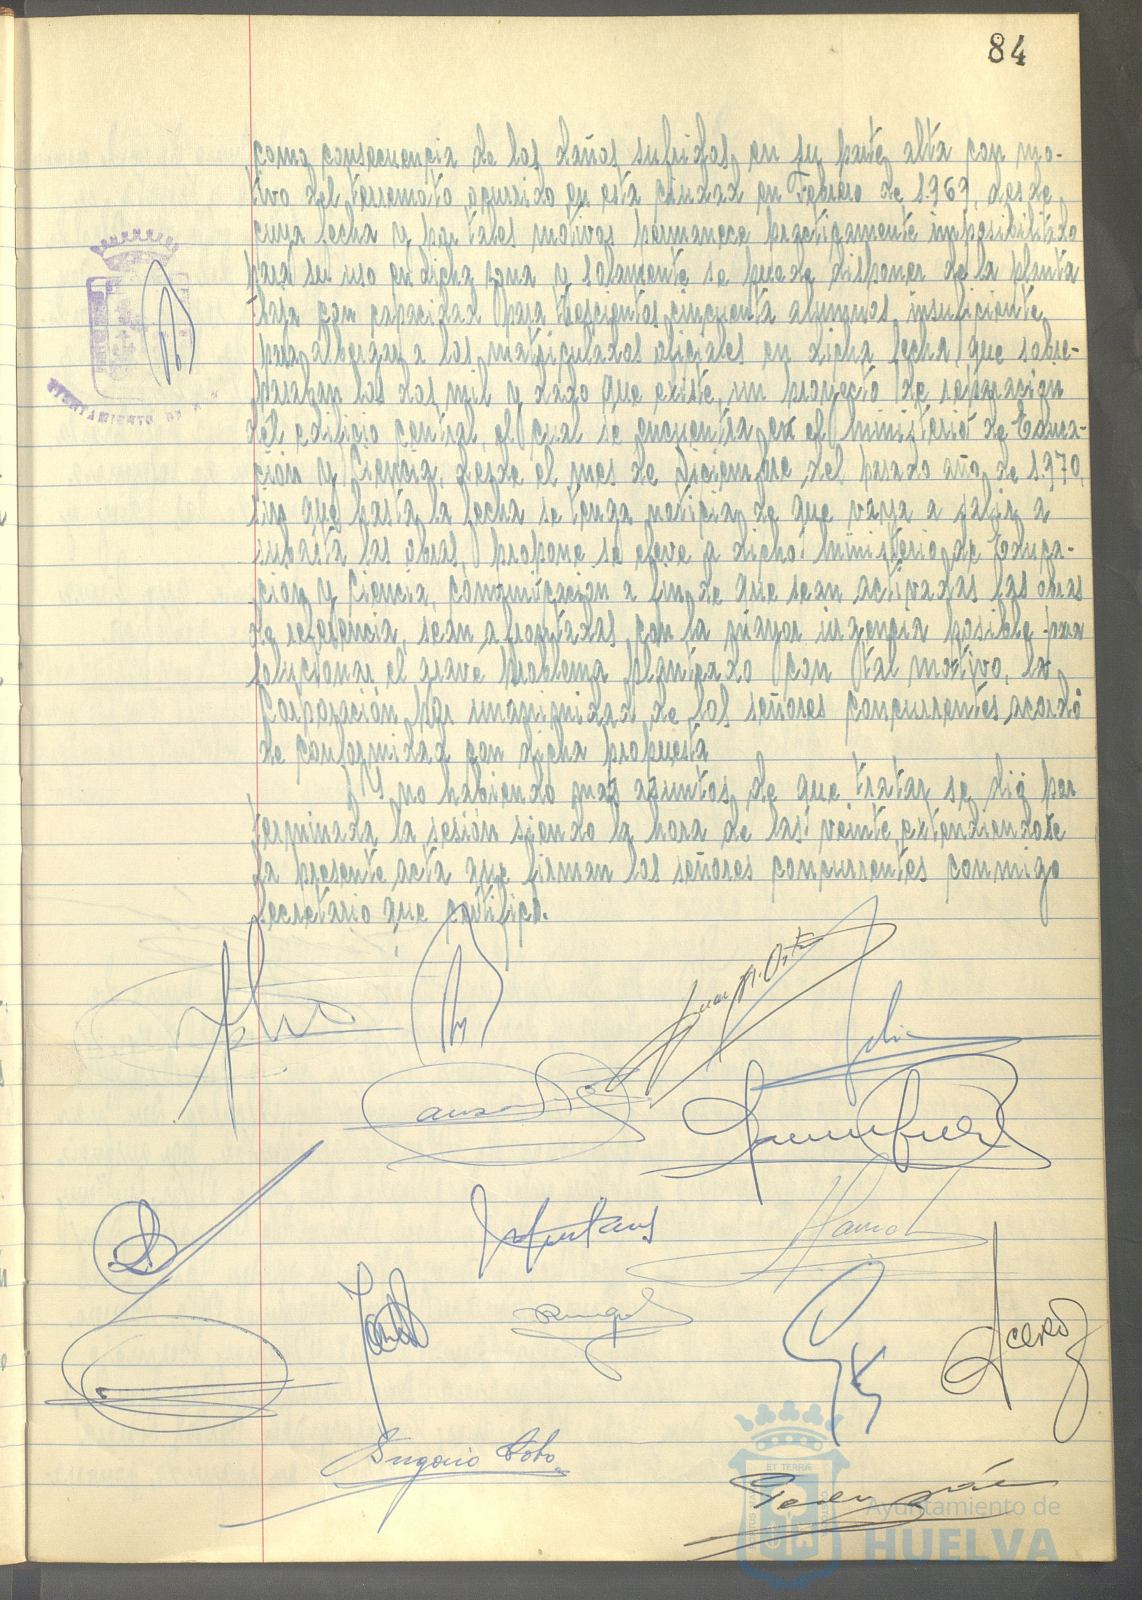 84
como consecuencia de los daños sufridos en su parte alta con mo-
tivo del terremoto ocurrido en esta ciudad en Febrero de 1.969, desde
cuya fecha y por tales motivos permanece practicamente imposibilitado
para su uso en dicha zona y solamente se puede disponer de la planta
baja con capacidad para trescientos cincuenta alumnos, insuficiente
para albergar a los matriculados oficiales en dicha fecha que sobre-
pasaban los dos mil y dado que existe, un proyecto de reparación
del edificio central, el cual se encuentra en el Ministerio de Educa-
ción y Ciencia, desde el mes de Diciembre del pasado año de 1.970,
sin que hasta la fecha se tenga noticia de que vaya a salir a
subasta las obras, propone se eleve a dicho Ministerio de Educa-
ción y Ciencia, comunicación a fin de que sean activadas las obras
de referencia, sean afrontadas con la mayor urgencia posible para
solucionar el grave problema planteado con tal motivo, la
Corporación por unanimidad de los señores concurrentes acordó
de conformidad con dicha propuesta
Y no habiendo mas asuntos de que tratar se dió por
terminada la sesión siendo la hora de las veinte extendiendose
la presente acta que firman los señores concurrentes conmigo
Secretario que certifico.
Acevedo
Eugenio Soto
ET TERRÆ
Ayuntamiento de
HUELVA